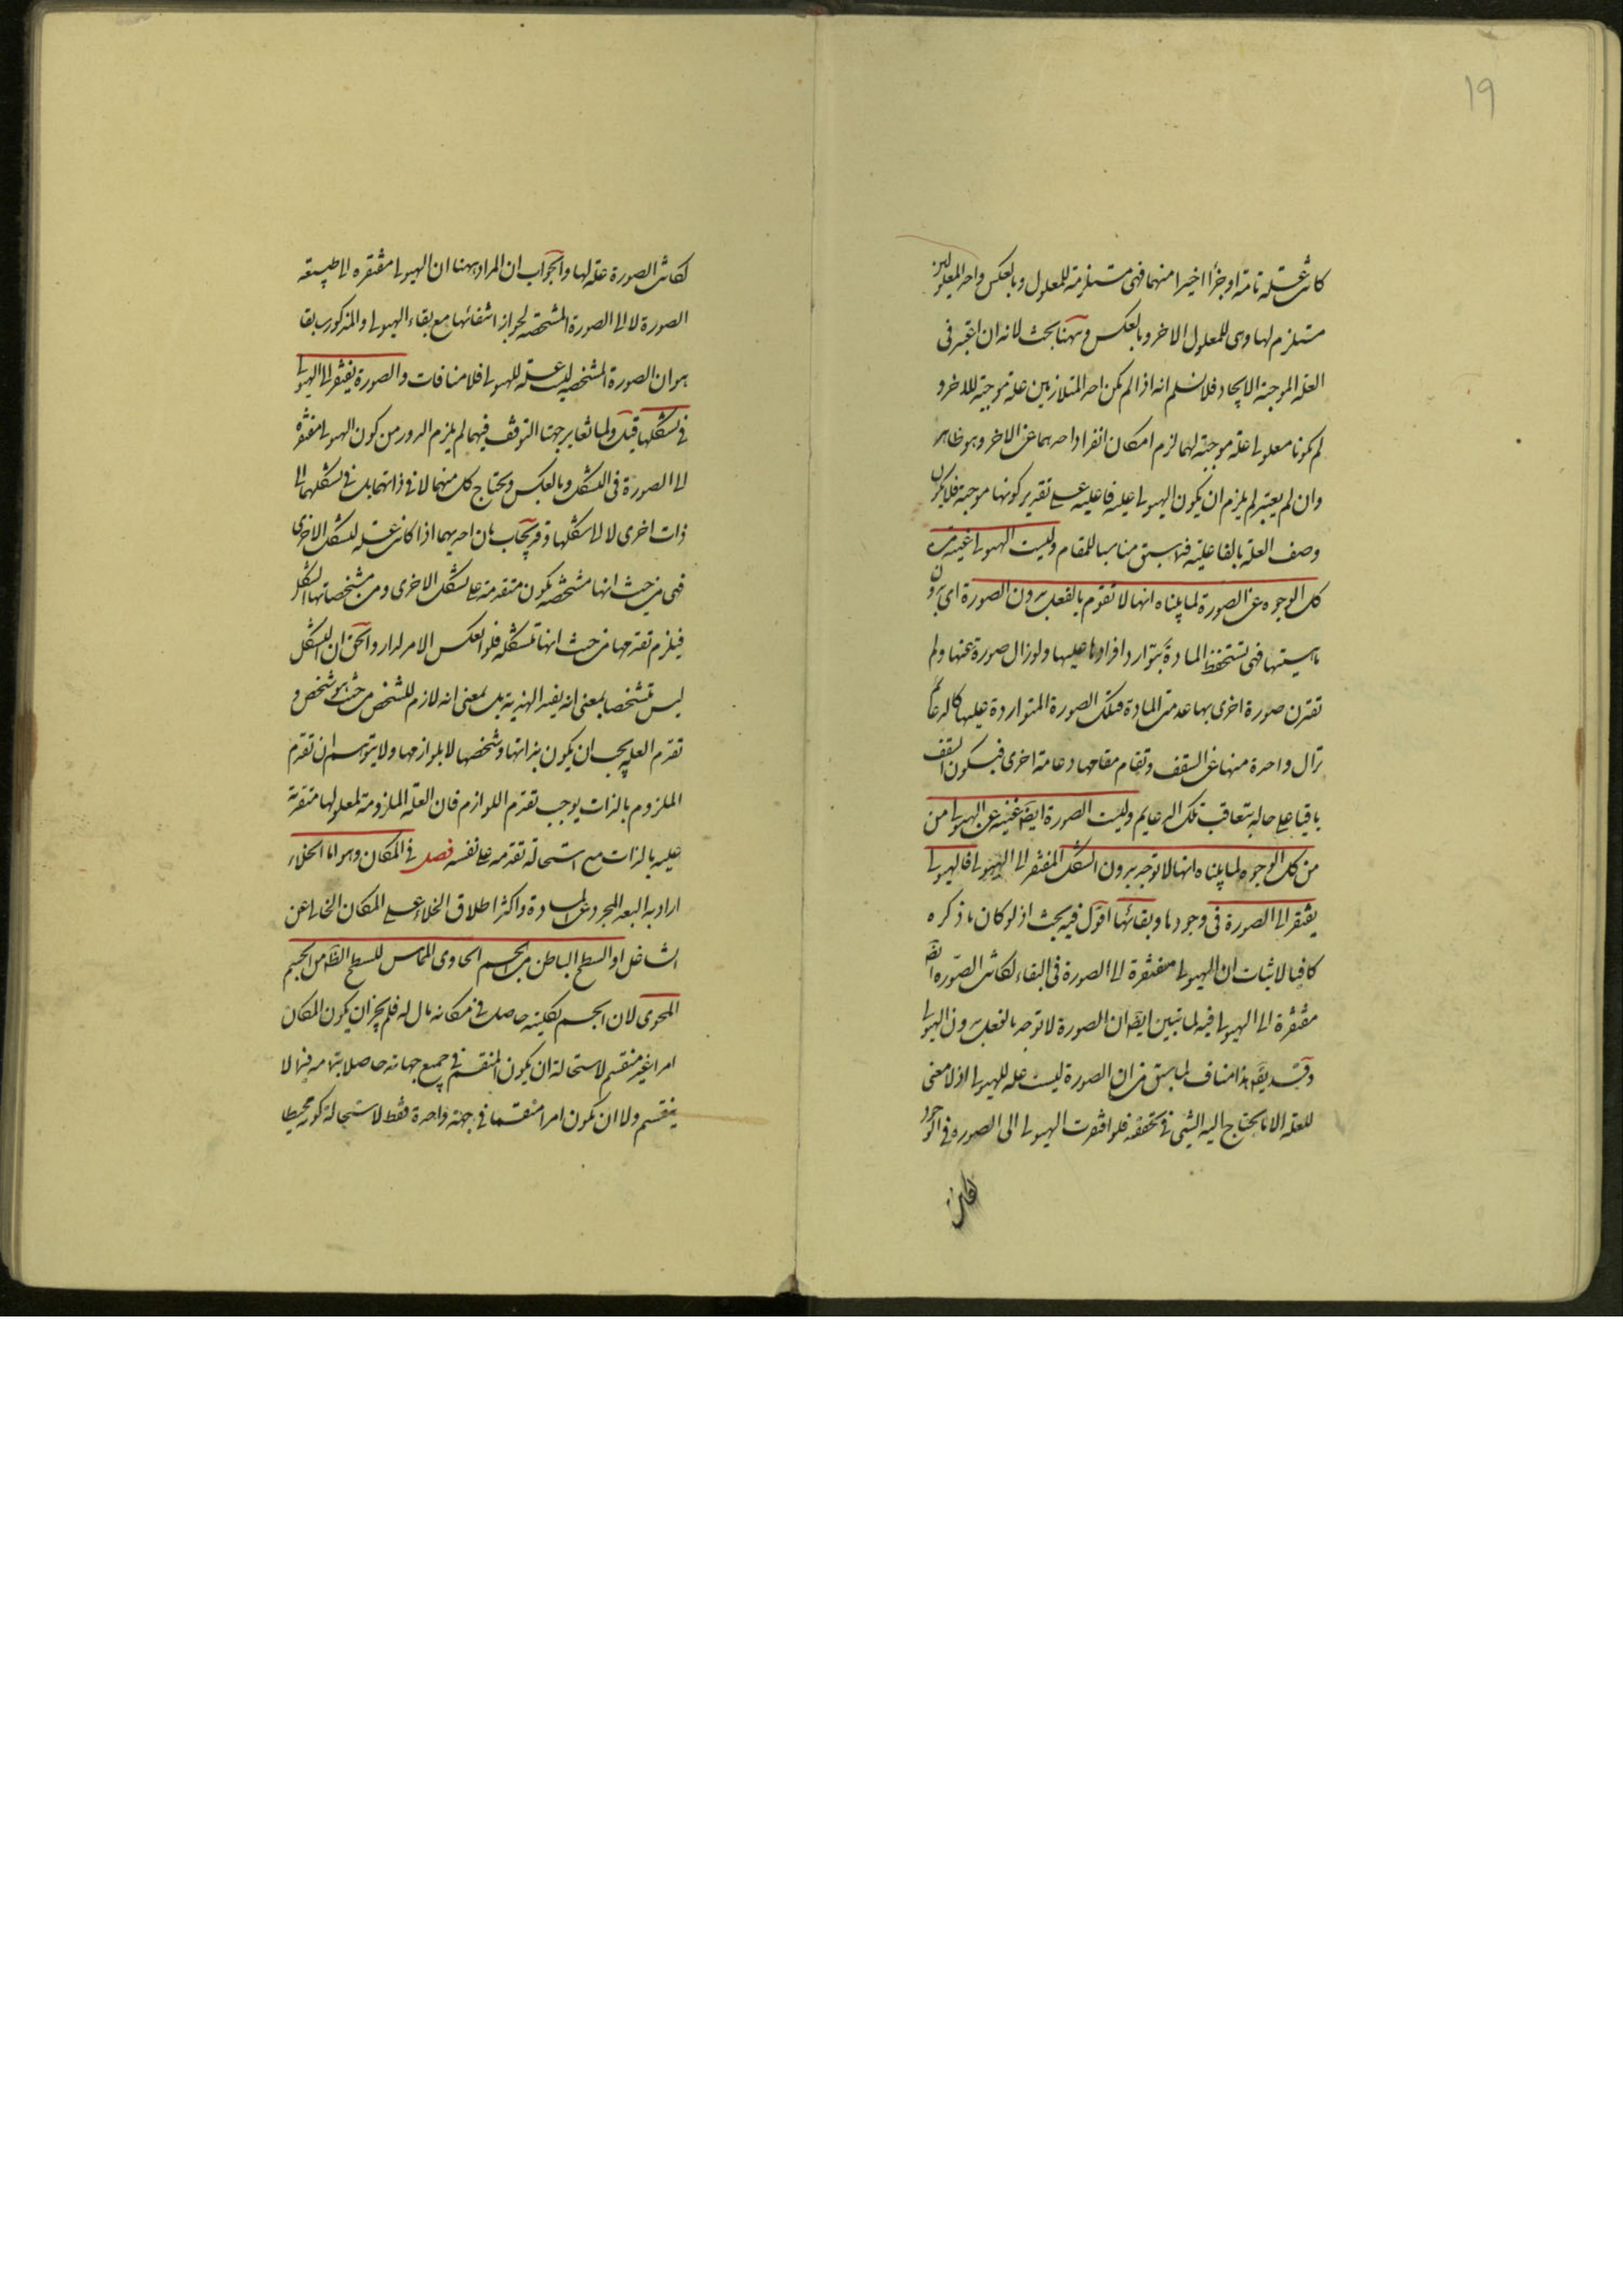 ١٩
كانت علة تامة او جزأ اخيرا منهما فهى مستلزمة للمعلول وبالعكس واحد المعلولين
مستلزم لها وهى للمعلول الاخر وبالعكس وههنا بحث لانه ان اعتبر فى
العلة الموجبة الايجاد فلا نسلم انه اذا لم يكن احد المتلازمين علة موجبة للاخر و
لم يكونا معلولى علة موجبة لهما لزم امكان انفراد احدهما عن الاخر وهو ظاهر
وان لم يعتبر لم يلزم ان يكون الهيولى علية فاعلية على تقدير كونها موجبة فلا يكون
وصف العلة بالفاعلية فيما سبق مناسبا للمقام وليست الهيولى غنية من
كل الوجوه عن الصورة لما بيناه انها لا تقوم بالفعل بدون الصورة اى بدون
ماهيتها فهى تستحفظ المادة بتوارد افرادها عليها ولو زال صورة عنها ولم
تقترن صورة اخرى بها عدمت المادة فتلك الصورة المتواردة عليها كالدعائم
تزال واحدة منها عن السقف وتقام مقامها دعامة اخرى فيكون السقف
باقيا على حاله بتعاقب تلك الدعايم وليست الصورة ايضا غنية عن الهيولى من
من كل الوجوه لما بيناه انها لا توجد بدون الشكل المفتقر الى الهيولى فالهيولى
يفتقر الى الصورة فى وجودها وبقائها اقول فيه بحث اذ لو كان ما ذكره
كافيا لاثبات ان الهيولى مفتقرة الى الصورة فى البقاء لكانت الصورة ايضا
مفتقرة الى الهيولى فيه لما تبين ايضا ان الصورة لا توجد بالفعل بدون الهيولى
وقد يقال هذا مناف لما سبق من ان الصورة ليست علة للهيولى اذ لا معنى
للعلة الا ما يحتاج اليه الشئ فى تحققه فلو افتقرت الهيولى الى الصورة فى الوجود
لكانت
لكانت الصورة علة لها والجواب ان المراد ههنا ان الهيولى مفتقره الى طبيعة
الصورة لا الى الصورة المشخصة لجواز انتفائها مع بقاء الهيولى والمذكور سابقا
هو ان الصورة المشخصه ليست علة للهيولى فلا منافات والصورة يفتقر الى الهيولى
فى تشكلها قيل ولما تغاير جهتا التوقف فيهما لم يلزم الدور من كون الهيولى مفتقرة
الى الصورة فى التشكل وبالعكس ويحتاج كل منهما لا فى ذاتهما بل فى تشكلهما الى
ذات اخرى لا الى شكلها وقد يجاب بان احديهما اذا كانت علة لتشكل الاخرى
فهى من حيث انها مشخصه يكون متقدمة على تشكل الاخرى ومن مشخصاتها الشكل
فيلزم تقدمها من حيث انها متشكله فلو انعكس الامر لدار والحق ان الشكل
ليس مشخصا بمعنى انه يفيد الهذية بل بمعنى انه لازم للتشخص من حيث هو شخص و
تقدم العلة يجب ان يكون بذاتها وشخصها لا بلوازمها ولا يتوهم ان تقدم
الملزوم بالذات يوجب تقدم اللوازم فان العلة الملزومة لمعلولها متقدمة
عليه بالذات مع استحالة تقدمه على نفسه فصل فى المكان وهو اما الخلاء
اراد به البعد المجرد عن المادة واكثر اطلاق الخلاء على المكان الخالى عن
الشاغل او السطح الباطن من الجسم الحاوى المماس للسطح الظاهر من الجسم
المحوى لان الجسم بكليته حاصل فى مكانه مال له فلم يجز ان يكون المكان
امرا غير منقسم لاستحالة ان يكون المنقسم فى جميع جهاته حاصلا بتمامه فيما لا
ينقسم ولا ان يكون امرا منقسما فى جهة واحدة فقط لاستحالة كونه محيطا